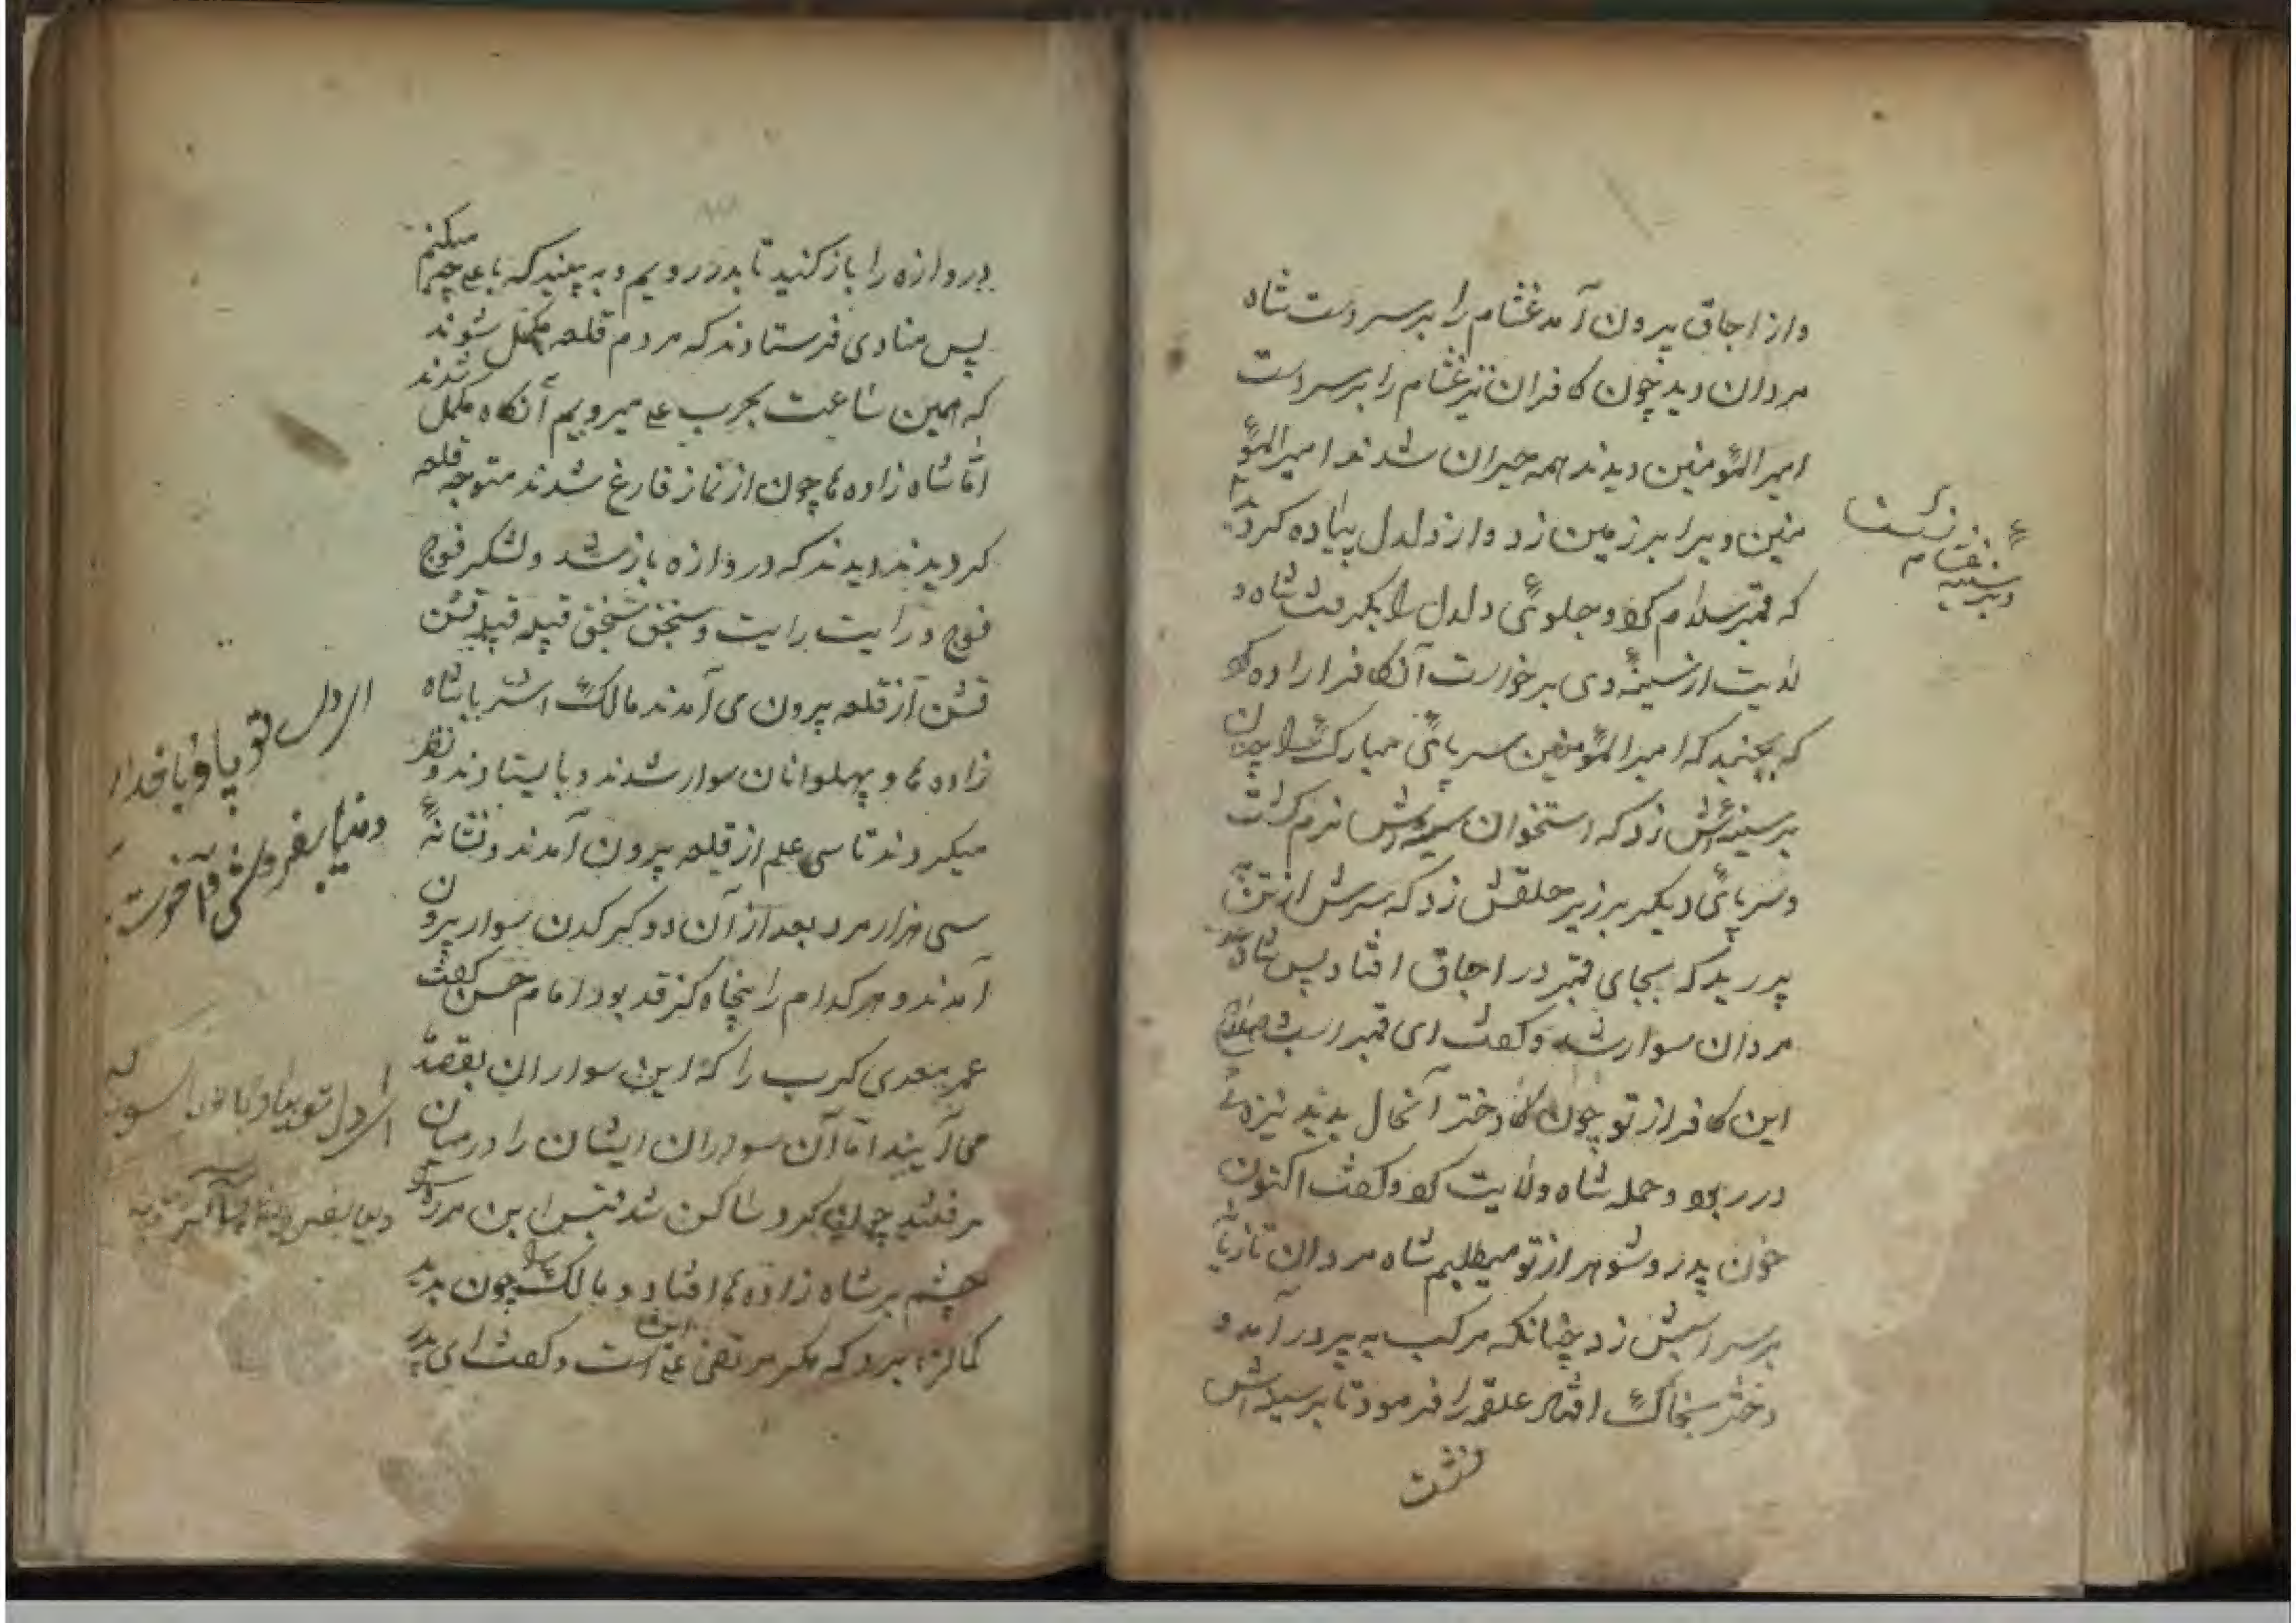 واز اجاق بیرون آمد غشام را بر سر دست شاه
مردان دید چون کافران نیز غشام را بر سر دست
امیر المؤمنین دیدند همه حیران شدند امیر المؤ
منین ویرا بر زمین زد و از دلدل پیاده کردید
که قنبر سلام کرد و جلوی دلدل را بگرفت شاه و
لایت از سینهٔ وی برخواست آن کافر اراده کرد
که بجنبد که امیر المؤمنین سر پائی مبارک را چنان
بر سینه‌اش زد که استخوان سینه‌اش نرم گشت
و سر پائی دیگر بر زیر حلقش زد که سرش از تن
پرید که بجای قنبر در اجاق افتاد پس شاه
مردان سوار شد و گفت ای قنبر اسب و صلاح
این کافر از تو چون دختر آنحال بدید نیزه
در ربود و حمله شاه ولایت کرد و گفت اکنون
خون پدر و شوهر از تو میطلبم شاه مردان تازیانه
بر سر اسبش زد چنانکه مرکب به پر در آمد و
دختر بخاک افتاد علقمه را فرمود تا بر سینه‌اش
نشست
بر سینه غشام نشست
دروازه را باز کنید تا بدر رویم و به بینید که با علی چه میکنم
پس منادی فرستادند که مردم قلعه مکمل شوند
که همین ساعت بحرب علی میرویم آنگاه مکمل شدند
امّا شاه زاده‌ها چون از نماز فارغ شدند متوجه قلعه
کردیدند دیدند که دروازه باز شد و لشکر فوج
فوج و رایت رایت و سنجق سنجق قبیله قبیله قشن
قشن از قلعه بیرون می آمدند مالک اشتر با شاه
زاده ها و پهلوانان سوار شدند و بایستادند و نظر
میکردند تا سی علم از قلعه بیرون آمدند و نشانهٔ
سی هزار مرد بعد از آن دو کرکدن سوار بیرون
آمدند و هر کدام را پنجاه گز قد بود امام حسن گفت
عمر معدی کرب را که این سواران بقصد
می آیند امّا آن سواران ایشان را در میان
گرفتند چون کرد ساکن شد قیس ابن مره را
چشم بر شاه زاده ها افتاد و مالک را چون بدید
کمان برد که مگر مرتضی علی است و گفت ای پدر
ای دل تو بیا و با خدا
دنیا بفروش و آخرت
ای دل تو بیا و با خدا